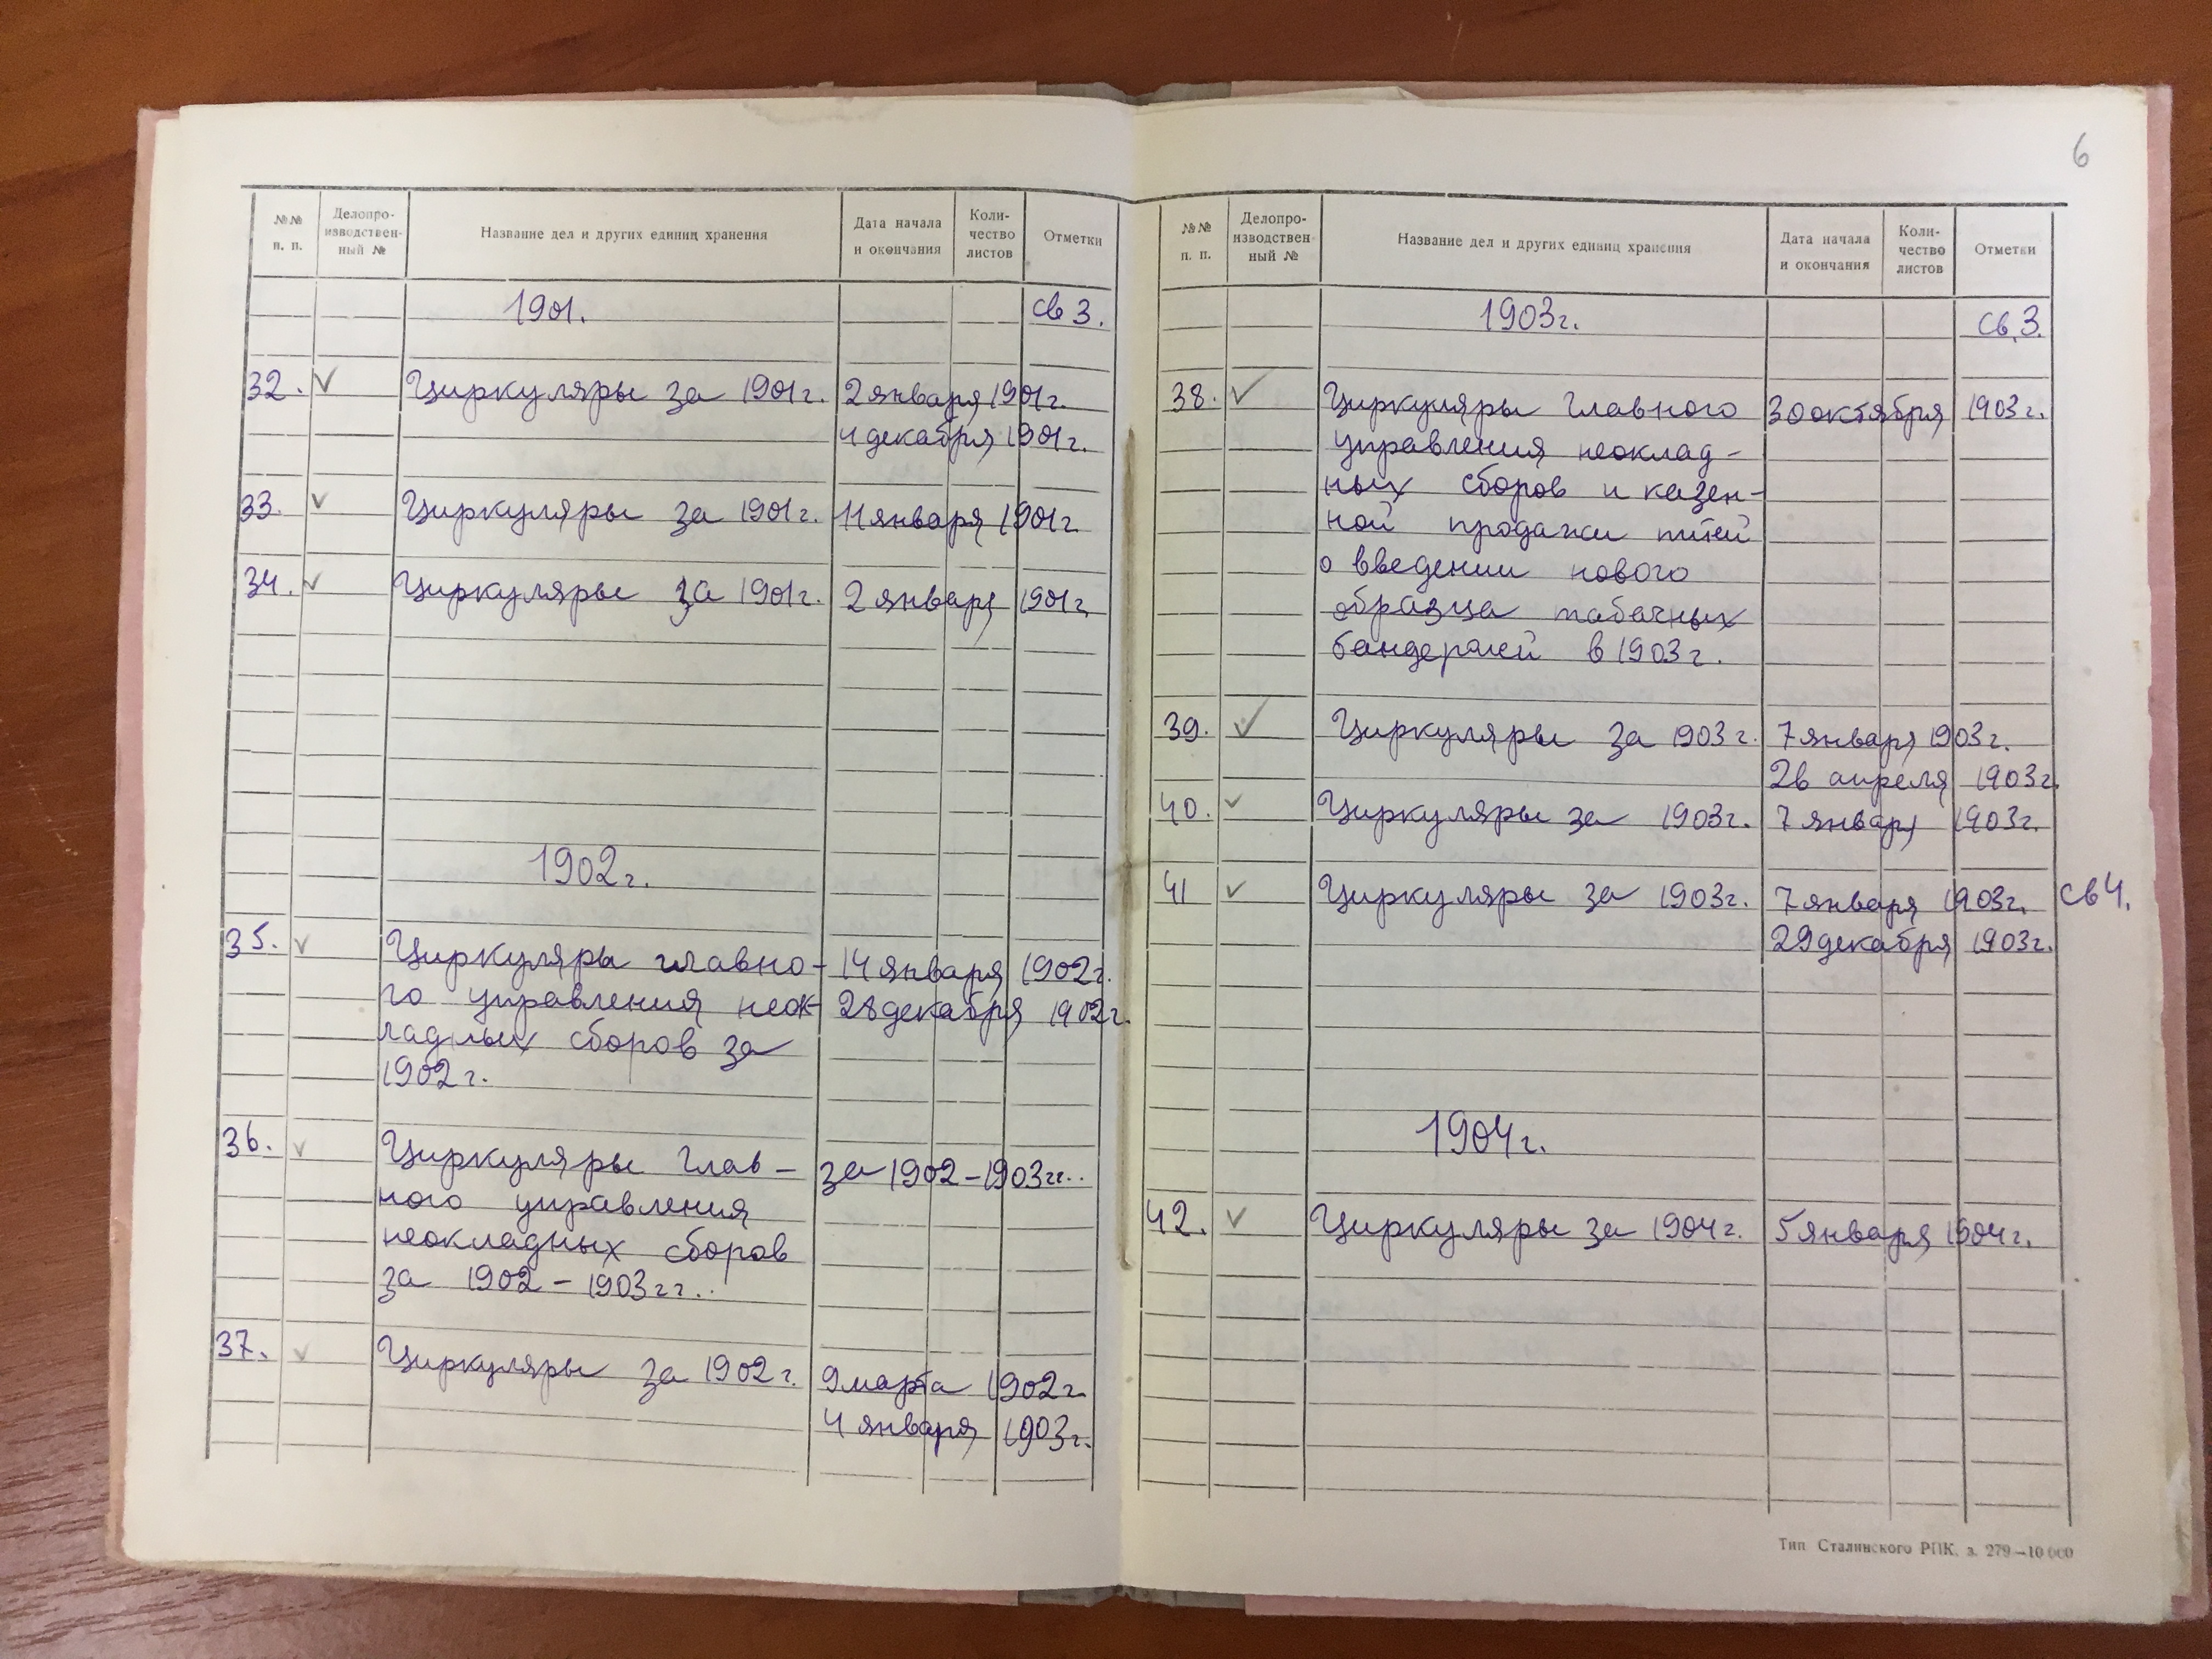 №№ п. п. Делопро-изводствен-ный № Название дел и других единиц хранения Дата начала и окончания Коли-чество листов Отметки
1901. св 3.
32. Циркуляры за 1901г. 2 января 1901г.
4 декабря 1901г.
33. Циркуляры за 1901г. 11 января 1901г
34. Циркуляры за 1901г. 2 января 1901г
1902г.
35. Циркуляры главно- 14 января 1902г.
го управления неок- 28 декабря 1902г.
ладных сборов за
1902г.
36. Циркуляры Глав- за 1902-1903гг..
ного управления
неокладных сборов
за 1902-1903гг..
37. Циркуляры за 1902г. 9 марта 1902г
4 января 1903г.
6
№№ п. п. Делопро-изводствен-ный № Название дел и других единиц хранения Дата начала и окончания Коли-чество листов Отметки
1903г. св.3.
38. Циркуляры Главного 30 октября 1903г.
управления неоклад-
ных сборов и казен-
ной продажи питей
о введении нового
образца табачных
бандеролей в 1903г.
39. Циркуляры за 1903г. 7 января 1903г.
26 апреля 1903г.
40. Циркуляры за 1903г. 7 января 1903г.
41 Циркуляры за 1903г. 7 января 1903г. св 4.
29 декабря 1903г.
1904г.
42. Циркуляры за 1904г. 5 января 1904г.
Тип Сталинского РПК. з. 279—10 000